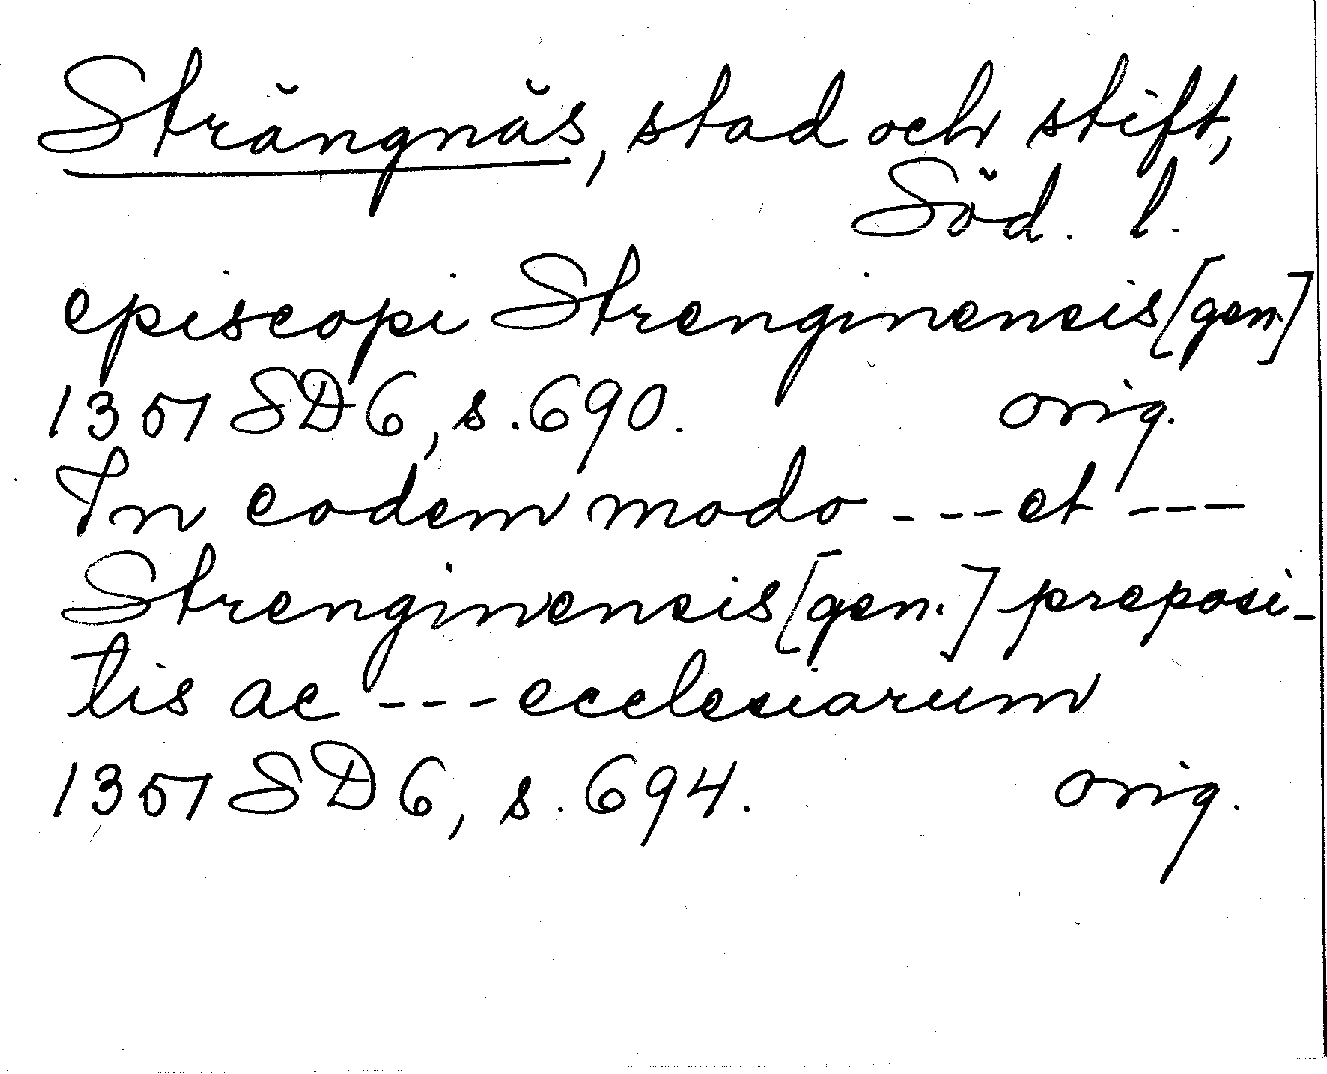 Strängnäs, stad och stift,
Söd. l.
episcopi Strenginensis [gen.]
1351 SD 6, s. 690. orig.
In eodem modo --- et ---
Strenginensis [gen.] preposi-
tis ac --- ecclesiarum
1351 SD 6, s. 694. orig.